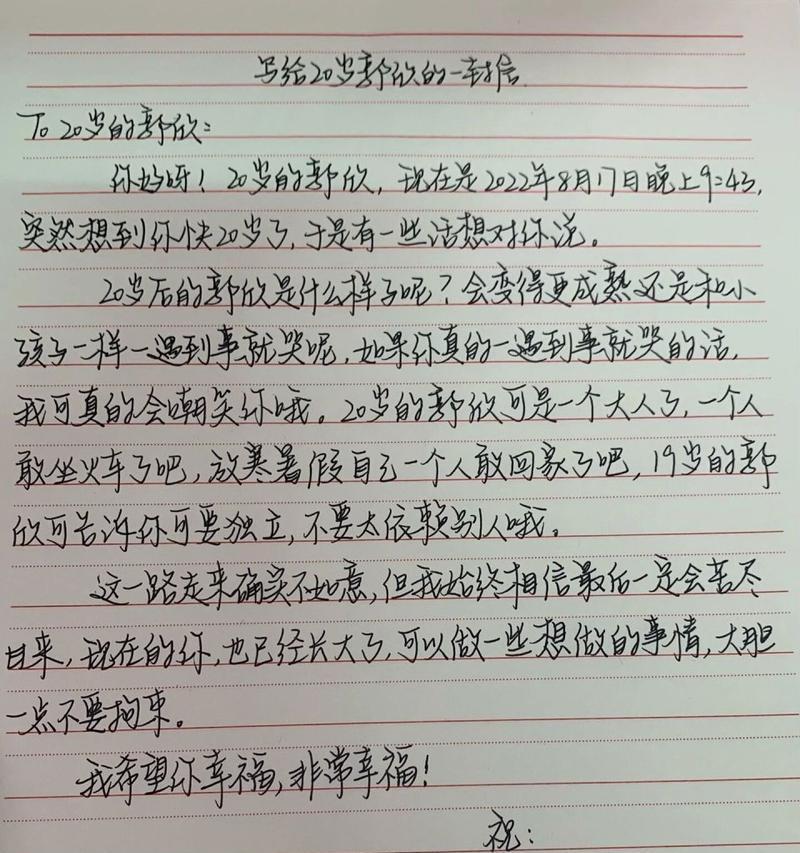 写给20岁郭欣的一封信
To 20岁的郭欣:
你好呀！20岁的郭欣，现在是2022年8月17日晚上9:43，
突然想到你快20岁了，于是有一些话想对你说。
20岁后的郭欣是什么样子呢？会变得更成熟还是和小
孩子一样一遇到事就哭呢，如果你真的一遇到事就哭的话，
我可真的会嘲笑你哦。20岁的郭欣可是一个大人了，一个人
敢坐火车了吧，放寒暑假自己一个人敢回家了吧，19岁的郭
欣可告诉你可要独立，不要太依赖别人哦。
这一路走来确实不如意，但我始终相信最后一定会苦尽
甘来，现在的你，也已经长大了，可以做一些想做的事情，大胆
一点不要拘束。
我希望你幸福，非常幸福！
祝：